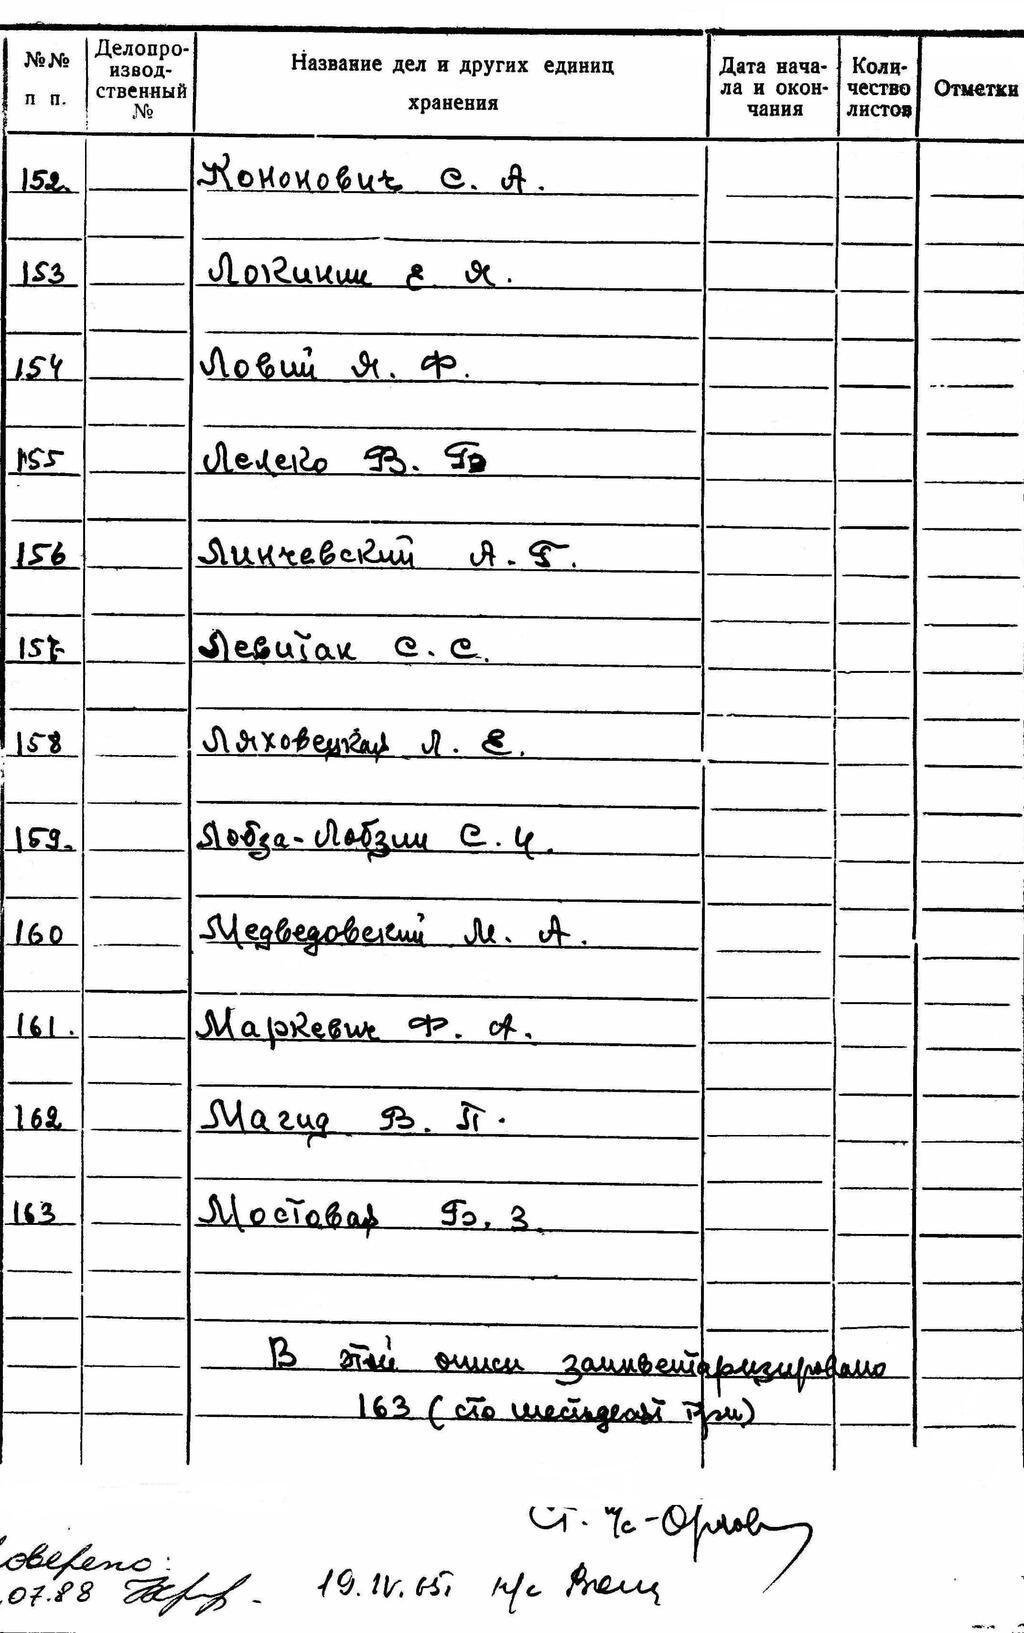 №№ п п.
Делопро-
извод-
ственный
№
Название дел и других единиц
хранения
Дата нача-
ла и окон-
чания
Коли-
чество
листов
Отметки
152. Кононович С. А.
153 Е Я.
154 Ловий Я. Ф.
155 Лелеко В. Б
156 Линчевский А. Г.
157 Левитан С. С.
158 Ляховецкая Л. Е.
159. Лобза-Лобзин С. И.
160 Медведовский М. А.
161. Маркевич Ф. А.
162 Магид В. П.
163 Мостовая Б. З.
В этой описи заинвентаризировано
163 (сто шестьдесят три)
Ст. н/с - Орлов
оверено:
.07.88
19.IV.65г н/с